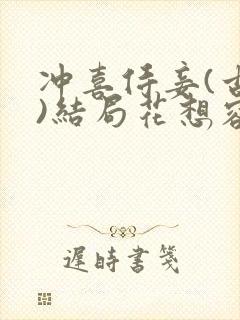 冲喜侍妾(古
)结局花想容
遲時書箋